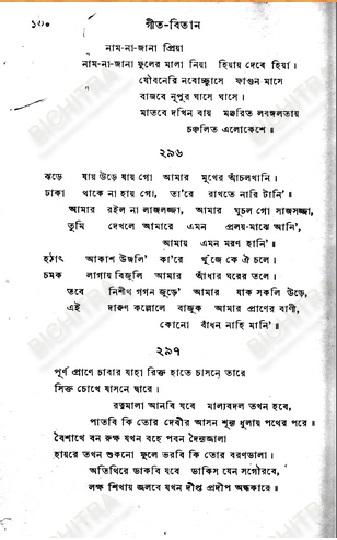 ১৫০ গীত-বিতান
নাম-না-জানা প্রিয়া
নাম-না-জানা ফুলের মালা নিয়া হিয়ায় দেবে হিয়া॥
যৌবনেরি নবোচ্ছ্বাসে ফাগুন মাসে
বাজবে নূপুর ঘাসে ঘাসে।
মাতবে দখিন বায় মঞ্জরিত লবঙ্গলতায়
চঞ্চলিত এলোকেশে॥
২৯৬
ঝড়ে যায় উড়ে যায় গো আমার মুখের আঁচলখানি।
ঢাকা থাকে না হায় গো, তা'রে রাখতে নারি টানি'॥
আমার রইল না লাজলজ্জা, আমার ঘুচল গো সাজসজ্জা,
তুমি দেখলে আমারে এমন প্রলয়-মাঝে আনি',
আমায় এমন মরণ হানি'॥
হঠাৎ আকাশ উজলি' কা'রে খুঁজে কে ঐ চলে।
চমক লাগায় বিজুলি আমার আঁধার ঘরের তলে।
তবে নিশীথ গগন জুড়ে' আমার যাক সকলি উড়ে,
এই দারুণ কল্লোলে বাজুক আমার প্রাণের বাণী,
কোনো বাঁধন নাহি মানি'॥
২৯৭
পূর্ণ প্রাণে চাবার যাহা রিক্ত হাতে চাসনে তারে
সিক্ত চোখে যাসনে দ্বারে।
রত্নমালা আনবি যবে মাল্যবদল তখন হবে,
পাতবি কি তোর দেবীর আসন শূন্য ধুলায় পথের পরে॥
বৈশাখে বন রুক্ষ যখন বহে পবন দৈন্যজালা
হায়রে তখন শুকনো ফুলে ভরবি কি তোর বরণডালা।
অতিথিরে ডাকবি যবে ডাকিস যেন সগৌরবে,
লক্ষ শিখায় জলবে যখন দীপ্ত প্রদীপ অন্ধকারে॥
BICHITRA